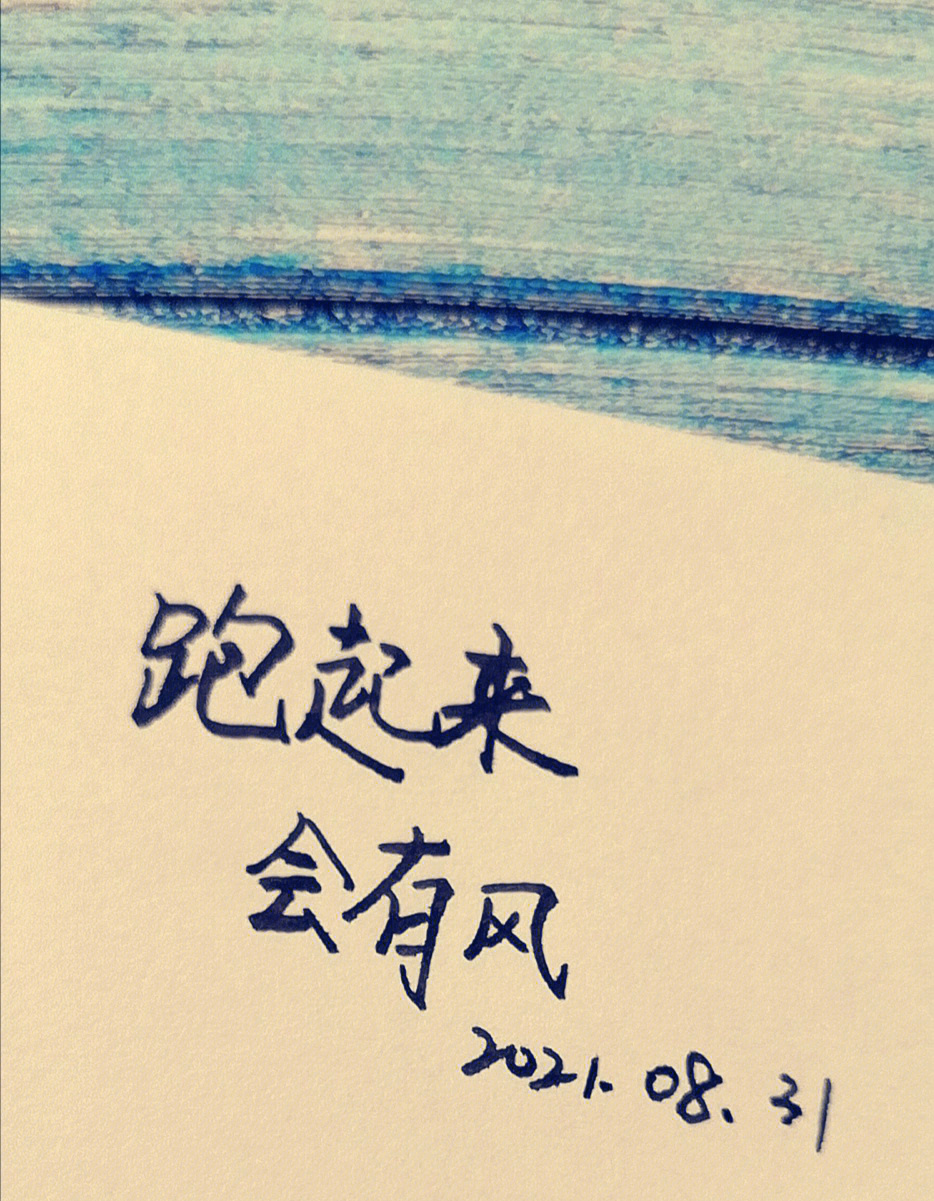 跑起来
会有风
2021.08.31